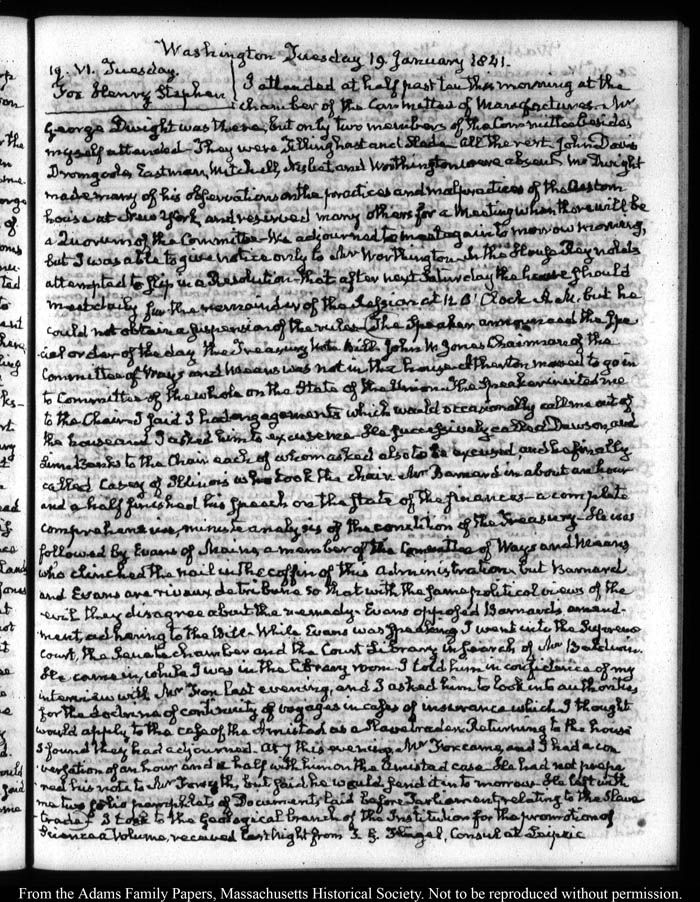 Washington Tuesday 19. January 1841.
19. VI. Tuesday.
Fox Henry Stephen
I attended at half past ten this morning at the
chamber of the Committee of Manufactures. Mr
George Dwight was there, but only two members of the Committee besides
myself attended – They were Tillinghast and Slade. All the rest, John Davis
Dromgoole, Eastman, Mitchell, Nisbet and Worthington were absent. Mr Dwight
made many of his observations on the practices and malpractices of the Custom
house at New York, and reserved many others for a Meeting when there will be
a Quorum of the Committee – We adjourned to meet again to morrow morning,
but I was able to give notice only to Mr Worthington – In the House Reynolds
attempted to slip in a Resolution that after next Saturday the house should
meet daily for the remainder of the Session at 11 O'Clock A.M. but he
could not obtain a suspension of the rules – The Speaker announced the Spe
cial order of the day the Treasury Note Bill. John W. Jones Chairman of the
Committee of Ways and Means was not in the house – Atherton moved to go in
to Committee of the whole on the State of the Union – The Speaker invited me
to the Chair – I said I had engagements which would occasionally call me out of
the house and I asked him to excuse me – He successively called Dawson, and
Linn Banks to the Chair each of whom asked also to be excused and he finally
called Casey of Illinois who took the chair. Mr Barnard in about an hour
and a half finished his speech on the state of the finances – a complete
comprehensive, minute analysis of the condition of the Treasury – He was
followed by Evans of Maine, a member of the Committee of Ways and Means
who clinched the nail in the coffin of this Administration. but Barnard
and Evans are rivaux de tribune so that with the same political views of the
evil they disagree about the remedy – Evans opposed Barnard's amend-
ment, adhering to the Bill – While Evans was speaking I went into the Supreme
Court, the Senate chamber and the Court Library in search of Mr Baldwin.
He came in, while I was in the Library room I told him in confidence of my
interview with Mr Fox last evening, and I asked him to look into authorities
for the doctrine of continuity of voyages in cases of insurance which I thought
would apply to the case of the Amistad as a Slave trader. Returning to the house
I found they had adjourned. At 7 this evening Mr Fox came, and I had a con
versation of an hour and a half with him on the Amistad case – He had not prepa
red his note to Mr Forsyth, but said he would send it in to morrow – He left with
me two folio pamphlets of Documents laid before Parliament relating to the Slave
trade. I took to the Geological branch of the Institution for the promotion of
Science a Volume, received last night from Flügel, Consul at Leipzic
From the Adams Family Papers, Massachusetts Historical Society. Not to be reproduced without permission.